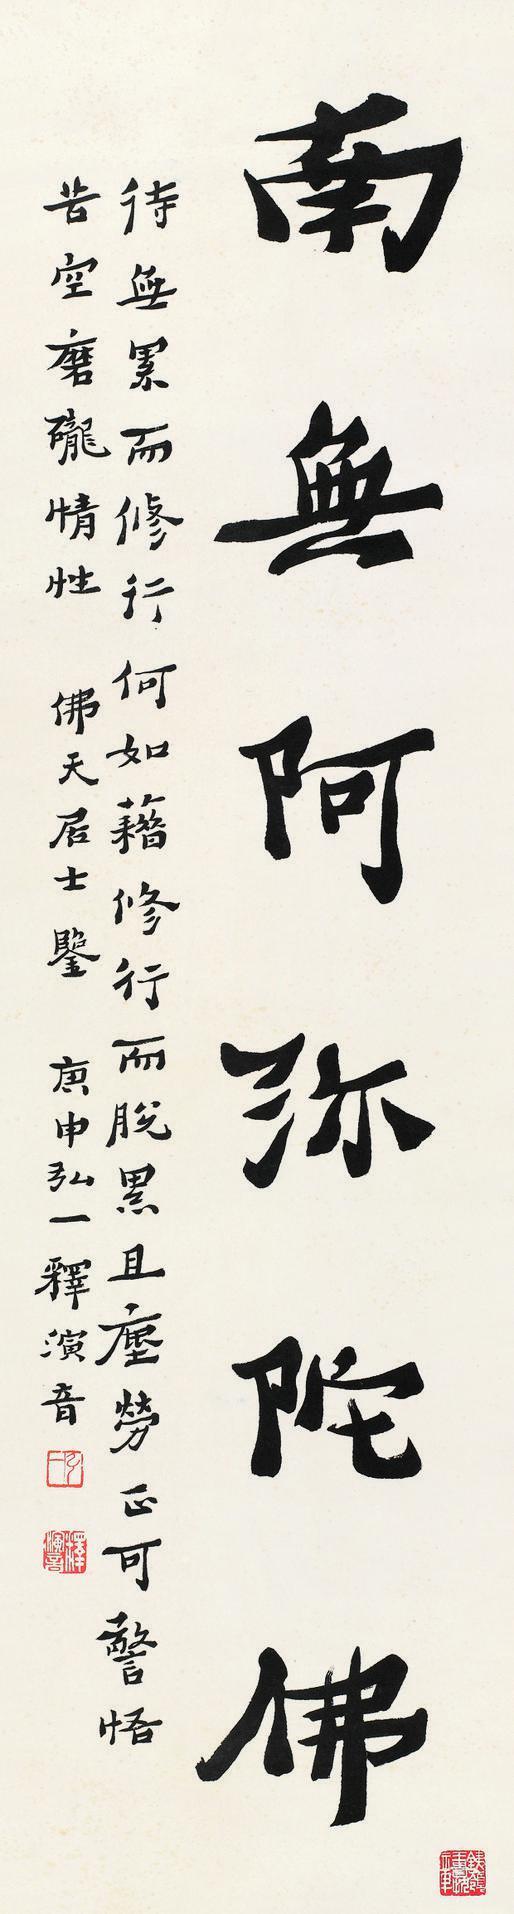 南無阿弥陀佛
待無累而修行何如藉修行而脫累且塵勞正可警悟
苦空磨礲情性 佛天居士鑒 庚申弘一釋演音
釋演音